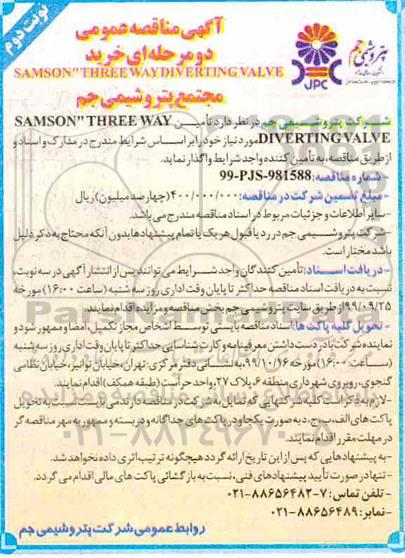 نوبت دوم
آگهی مناقصه عمومی
دو مرحله ای خرید
SAMSON" THREE WAY DIVERTING VALVE
مجتمع پتروشیمی جم
پتروشیمی جم
JPC
شرکت پتروشیمی جم در نظر دارد تأمین SAMSON" THREE WAY
DIVERTING VALVE مورد نیاز خود را بر اساس شرایط مندرج در مدارک و اسناد و
از طریق مناقصه، به تأمین کننده واجد شرایط واگذار نماید.
-شماره مناقصه: 99-PJS-981588
-مبلغ تضمین شرکت در مناقصه: ۴۰۰/۰۰۰/۰۰۰ (چهارصد میلیون) ریال
-سایر اطلاعات و جزئیات مربوط در اسناد مناقصه مندرج می باشد.
-شرکت پتروشیمی جم در رد یا قبول هر یک یا تمام پیشنهادها بدون آنکه محتاج به ذکر دلیل
باشد مختار است.
-دریافت اسناد: تأمین کنندگان واجد شرایط می توانند پس از انتشار آگهی در سه نوبت،
نسبت به دریافت اسناد مناقصه حداکثر تا پایان وقت اداری روز سه شنبه (ساعت ۱۶:۰۰) مورخه
۹۹/۰۹/۲۵ از طریق سایت پتروشیمی جم بخش مناقصه و مزایده اقدام نمایند.
-تحویل کلیه پاکت ها: اسناد مناقصه بایستی توسط اشخاص مجاز تکمیل، امضا و ممهور شود و
نماینده شرکت با در دست داشتن معرفینامه و کارت شناسایی حداکثر تا پایان وقت اداری روز سه شنبه
(ساعت ۱۶:۰۰) مورخه ۹۹/۱۰/۱۶ به نشانی دفتر مرکزی: تهران، خیابان توانیر، خیابان نظامی
گنجوی، روبروی شهرداری منطقه ۶، پلاک ۲۷، واحد حراست (طبقه همکف) اقدام نمایند.
-لازم به ذکر است کلیه شرکتهایی که تمایل به شرکت در مناقصه دارند می بایست نسبت به تحویل
پاکت های الف، ب، ج، د به صورت یکجا و در پاکت های جداگانه و دربسته و ممهور به مهر مناقصه گر
در مهلت مقرر اقدام نمایند.
-به پیشنهادهایی که پس از این تاریخ ارائه گردد هیچگونه ترتیب اثری داده نخواهد شد.
-تنها در صورت تأیید پیشنهادهای فنی، نسبت به بازگشائی پاکت های مالی اقدام می گردد.
-تلفن تماس: ۷-۸۸۶۵۶۴۸۲-۰۲۱
-نمابر: ۸۸۶۵۶۴۸۹-۰۲۱
روابط عمومی شرکت پتروشیمی جم
۰۲۱-۸۸۳۴۹۶۷۰-۵